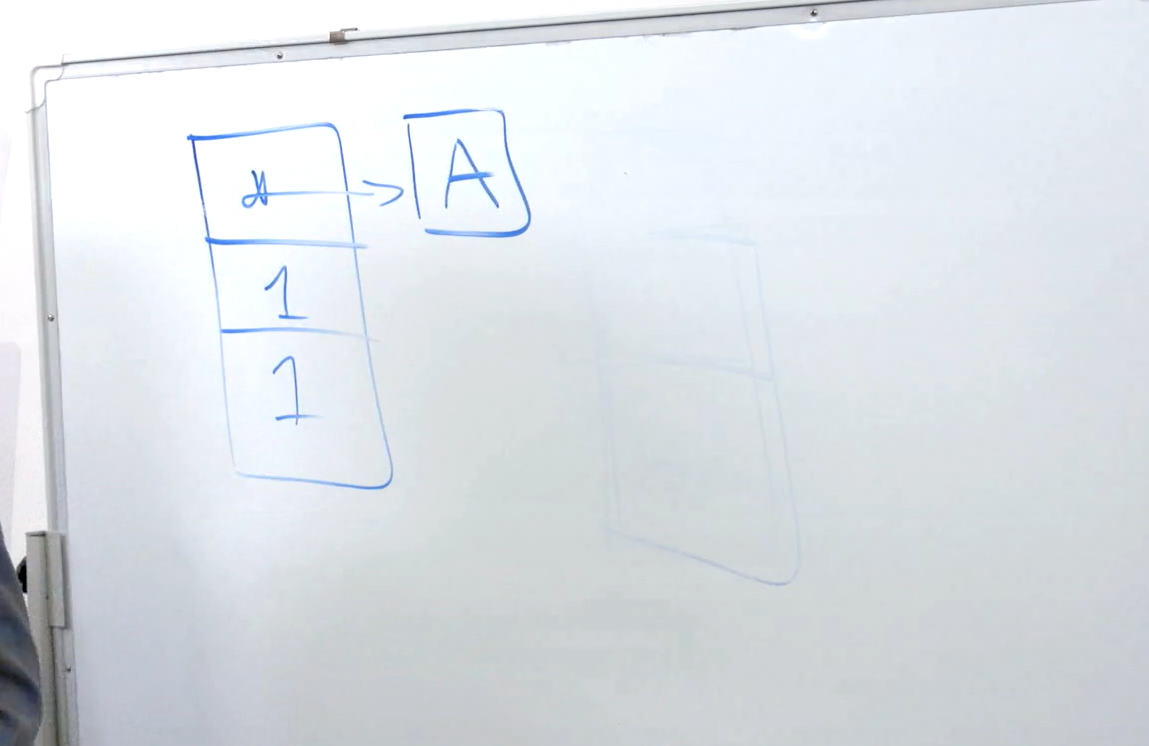 A
1
1